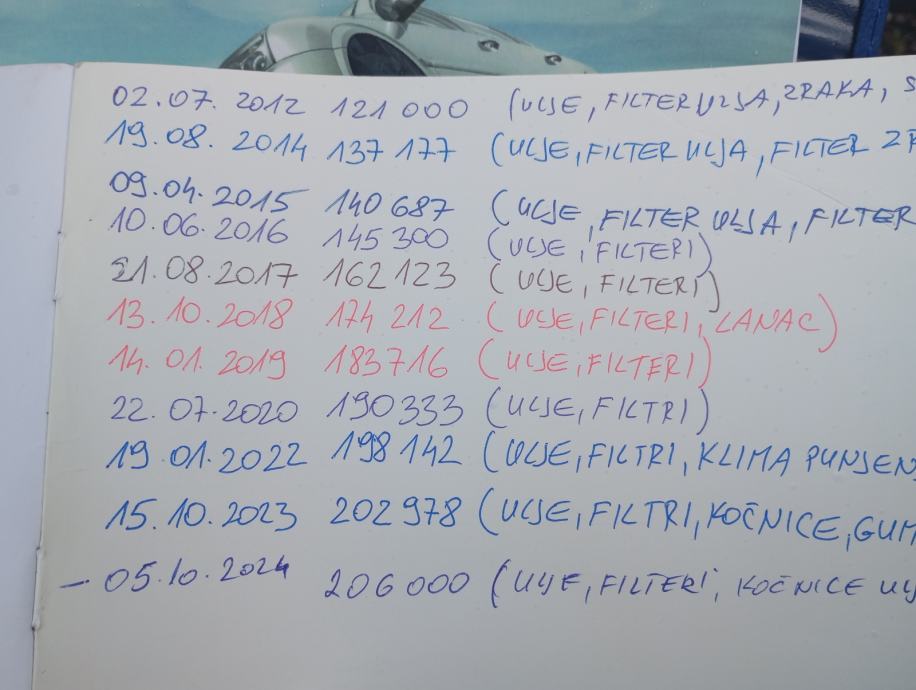 02.07.2012 121 000 (ULJE, FILTER ULJA, ZRAKA, S
19.08.2014 137 177 (ULJE, FILTER ULJA, FILTER ZR
09.04.2015 140 687 (ULJE, FILTER ULJA, FILTER
10.06.2016 145 300 (ULJE, FILTERI)
21.08.2017 162 123 (ULJE, FILTERI)
13.10.2018 174 212 (ULJE, FILTERI, LANAC)
14.01.2019 183716 (ULJE, FILTERI)
22.07.2020 190333 (ULJE, FILTRI)
19.01.2022 198 142 (ULJE, FILTRI, KLIMA PUNJEN
15.10.2023 202 978 (ULJE, FILTRI, KOČNICE, GUM
- 05.10.2024 206 000 (ULJE, FILTERI, KOČNICE ULJ